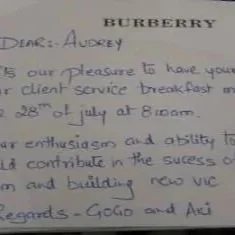 BURBERRY
DEAR:- AUDREY
Its our pleasure to have your
client service breakfast on
28th of july at 8:00am.
enthusiasm and ability to
contribute in the sucess of
and building new VIC
Regards - GOGO and Aki